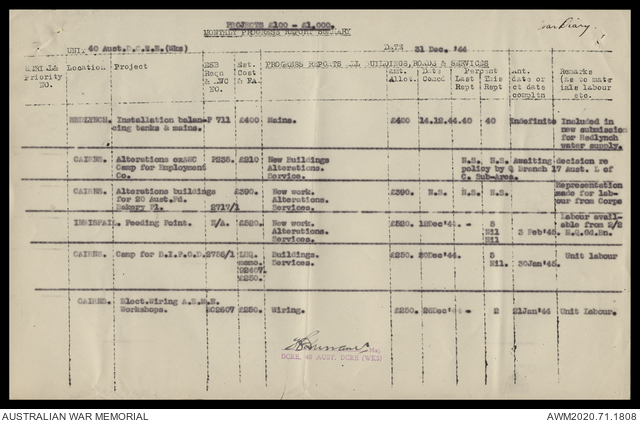 PROJECTS £100 - £1,000.
MONTHLY PROGRESS REPORT SUMMARY
War Diary.
UNIT. 40 Aust.D.C.R.E.(Wks) DATE 31 Dec. '44
Priority NO. Location Project ESB Reqn & NO. Est. Cost & FA. PROGRESS REPORTS ALL BUILDINGS, ROADS & SERVICES Amt. Allot. Date Comcd Percent Last Rept This Rept Ant. date or ct date complin Remarks (as to mater ials labour etc.
REDLYNCH. Installation balan- P 711 £400 Mains. £400 14.12.44. 40 40 Indefinite Included in
cing tanks & mains. new submission
for Redlynch
water supply.
CAIRNS. Alterations exAWC P238. £210 New Buildings N.S. N.S. Awaiting decision re
Camp for Employment Alterations. policy by Q Branch 17 Aust. L of
Co. Service. C. Sub-Area.
CAIRNS. Alterations buildings £390. New work. £390. N.S. N.S. N.S. Representation
for 20 Aust.Fd. Alterations. made for lab-
Bakery Pl. 2717/1 Services. our from Corps
INNISFAIL. Feeding Point. N/A. £520. New work. £520. 18Dec'44. - 5 3 Feb'45. Labour avail-
Alterations. Nil able from
Services. Nil H.Q.Gd.Bn.
CAIRNS. Camp for D.I.P.O.D. 2752/1 Buildings. £250. 20Dec'44. - 5 30Jan'45. Unit labour
Services. Nil.
£250.
CAIRNS. Elect.Wiring A.E.M.E. £250. Wiring. £250. 26Dec'44 - 2 21Jan'44 Unit Labour.
Workshops.
Maj.
DCRE, 40 AUST. DCRE (WKS)
AUSTRALIAN WAR MEMORIAL AWM2020.71.1808